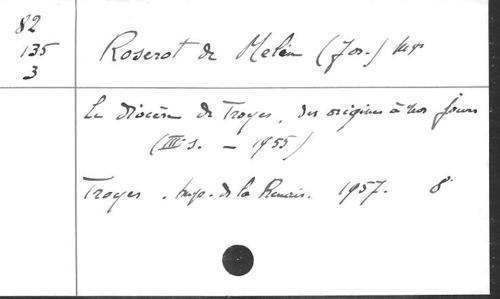 82
135
3
Roserot de Melin (Jos.) Mgr
Le diocèse de Troyes, des origines à nos jours
(IIIe s. – 1955)
Troyes. Imp. de la Renais. 1957. 8°